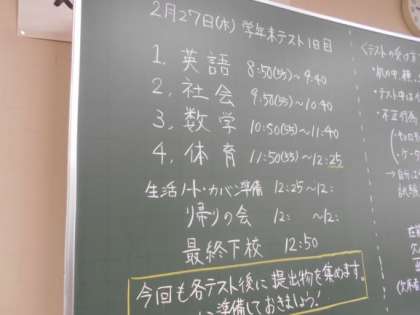 2月27日(木) 学年末テスト1日目
1. 英語 8:50(55)~9:40
2. 社会 9:50(55)~10:40
3. 数学 10:50(55)~11:40
4. 体育 11:50(55)~12:25
生活ノート・カバン準備 12:25~12:
帰りの会 12: ~12:
最終下校 12:50
今回も各テスト後に提出物を集めます。
準備しておきましょう!
<テストの受け方
・机の中、
・テスト中は
・不正行為